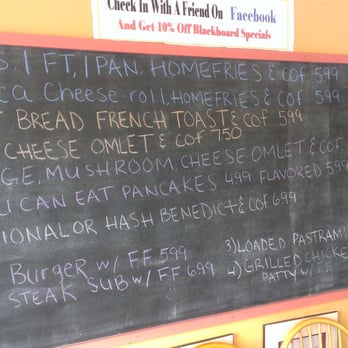 Check In With A Friend On Facebook
And Get 10% Off Blackboard Specials
S. 1 FT, 1 PAN, HOMEFRIES & COF 599
ca Cheese roll, HOMEFRIES & COF 599
BREAD FRENCH TOAST & COF 599
CHEESE OMLET & COF 750
GE, MUSHROOM, CHEESE OMLET & COF
U CAN EAT PANCAKES 4.99 FLAVORED 599
IONAL OR HASH BENEDICT & COF 699
BURGER W/ FF 599
STEAK SUB W/ FF 699
3) LOADED PASTRAMI
4) GRILLED CHICKE
PATTY W/ FF